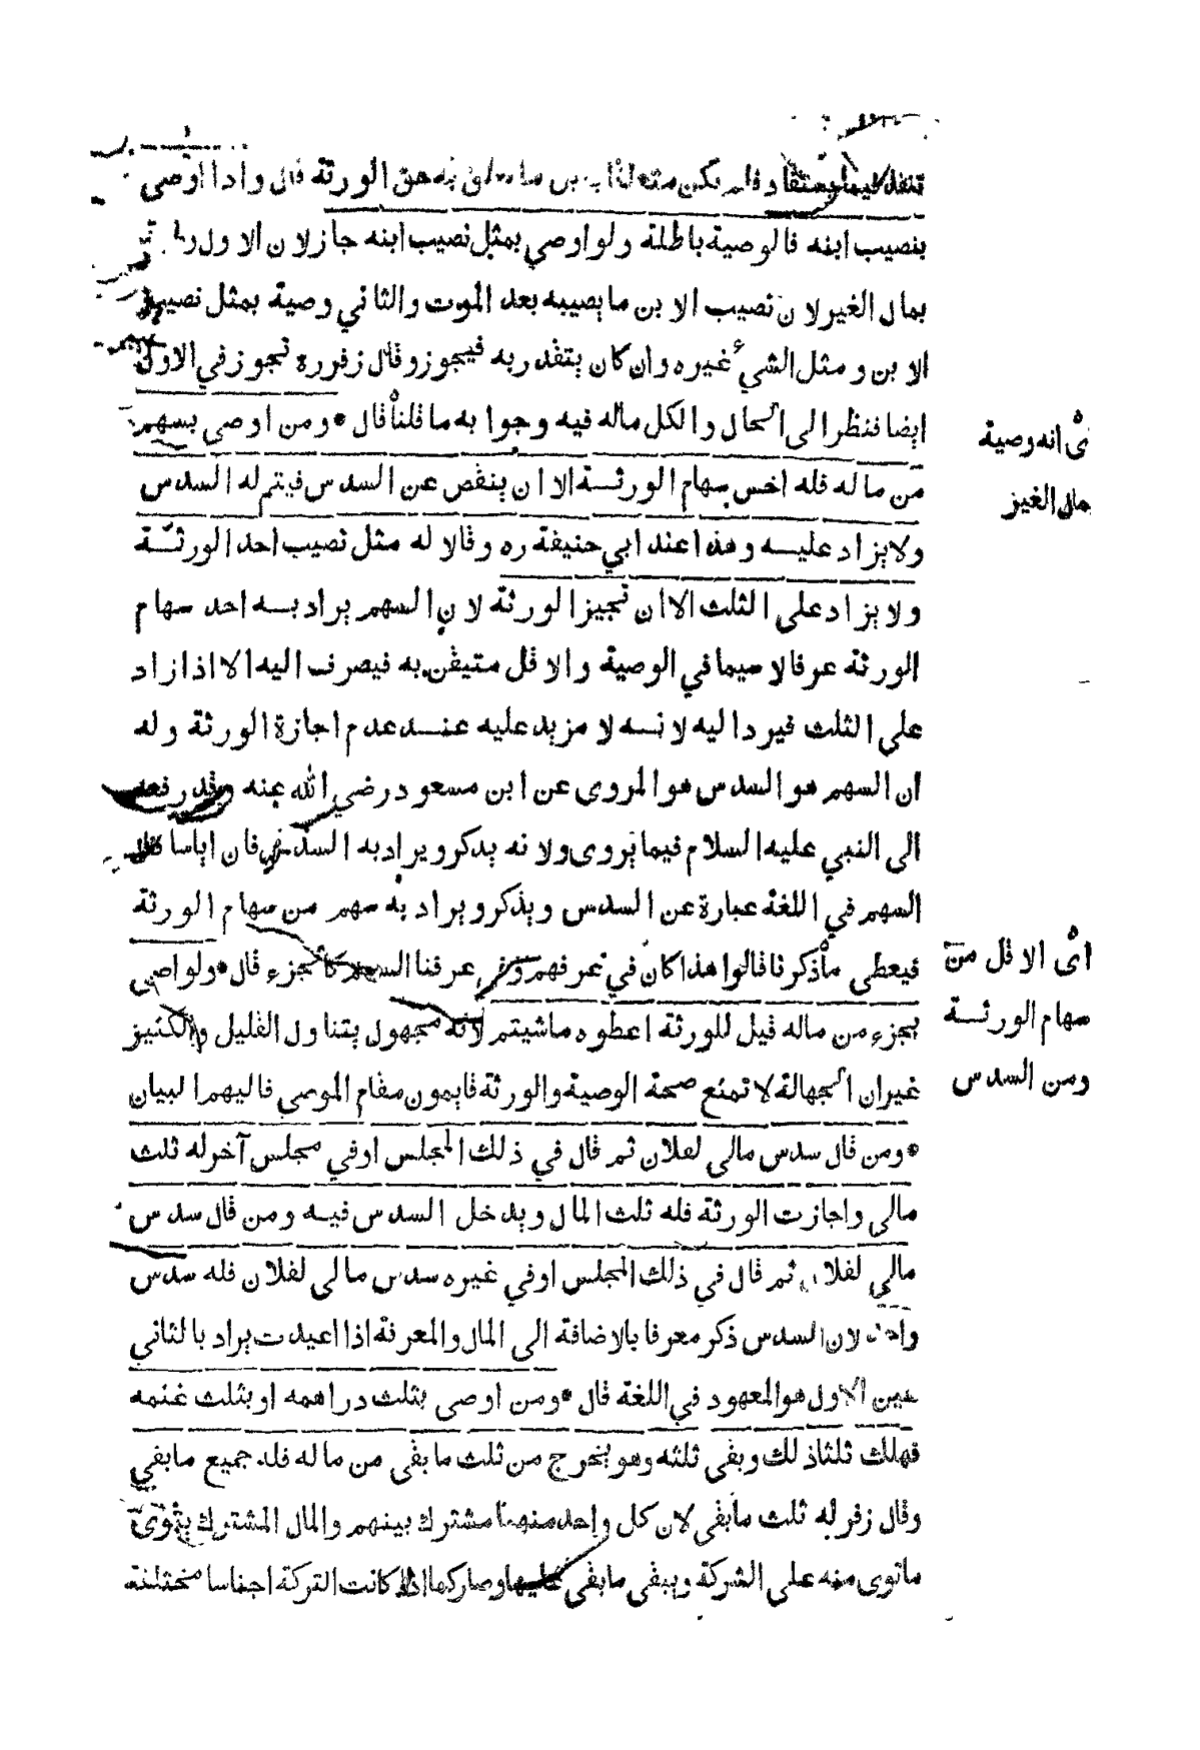 حق الورثة قال واذا اوصى
بنصيب ابنه فالوصية باطلة ولو اوصي بمثل نصيب ابنه جاز لان الاول
بمال الغير لان نصيب الابن ما يصيبه بعد الموت والثاني وصية بمثل نصيب
الابن ومثل الشيء غيره وان كان يتقدر به فيجوز وقال زفر ره تجوز في الاول
ايضا فنظرا لى الحال والكل ماله فيه وجوا به ما قلنا قال * ومن اوصي بسهم
من ماله فله اخس سهام الورثة الا ان ينقص عن السدس فيتم له السدس
ولا يزاد عليه وهذا عند ابي حنيفة ره وقالا له مثل نصيب احد الورثة
ولا يزاد علي الثلث الا ان تجيز الورثة لان السهم يراد به احد سهام
الورثة عرفا لا سيما في الوصية والاقل متيقن به فيصرف اليه الا اذا زاد
علي الثلث فيرد اليه لانه لا مزيد عليه عند عدم اجازة الورثة وله
ان السهم هو السدس هو المروى عن ابن مسعود رضي الله عنه وقد رفعه
الى النبي عليه السلام فيما يروى ولانه يذكر ويراد به السدس فان اياسا قال
السهم في اللغة عبارة عن السدس ويذكر ويراد به سهم من سهام الورثة
فيعطى ما ذكرنا قالوا هذا كان في عرفهم وفي عرفنا السهم كالجزء قال * ولو اوصي
بجزء من ماله قيل للورثة اعطوه ما شيتم لانه مجهول يتناول القليل والكثير
غير ان الجهالة لا تمنع صحة الوصية والورثة قايمون مقام الموصي فاليهم البيان
* ومن قال سدس مالى لفلان ثم قال في ذلك المجلس اوفي مجلس آخر له ثلث
مالى واجازت الورثة فله ثلث المال ويدخل السدس فيه ومن قال سدس
مالي لفلان ثم قال في ذلك المجلس اوفي غيره سدس مالى لفلان فله سدس
واحد لان السدس ذكر معرفا بالاضافة الى المال والمعرفة اذا اعيدت يراد بالثاني
عين الاول هو المعهود في اللغة قال * ومن اوصى بثلث دراهمه او بثلث غنمه
فهلك ثلثا ذلك وبقى ثلثه وهو يخرج من ثلث ما بقى من ماله فله جميع ما بقي
وقال زفر له ثلث ما بقى لان كل واحد منهما مشترك بينهم والمال المشترك يتوى
ما توى منه علي الشركة ويبقى ما بقى عليها وصار كما اذا كانت التركة اجناسا مختلفة
اى انه وصية
بمال الغير
اى الاقل من
سهام الورثة
ومن السدس